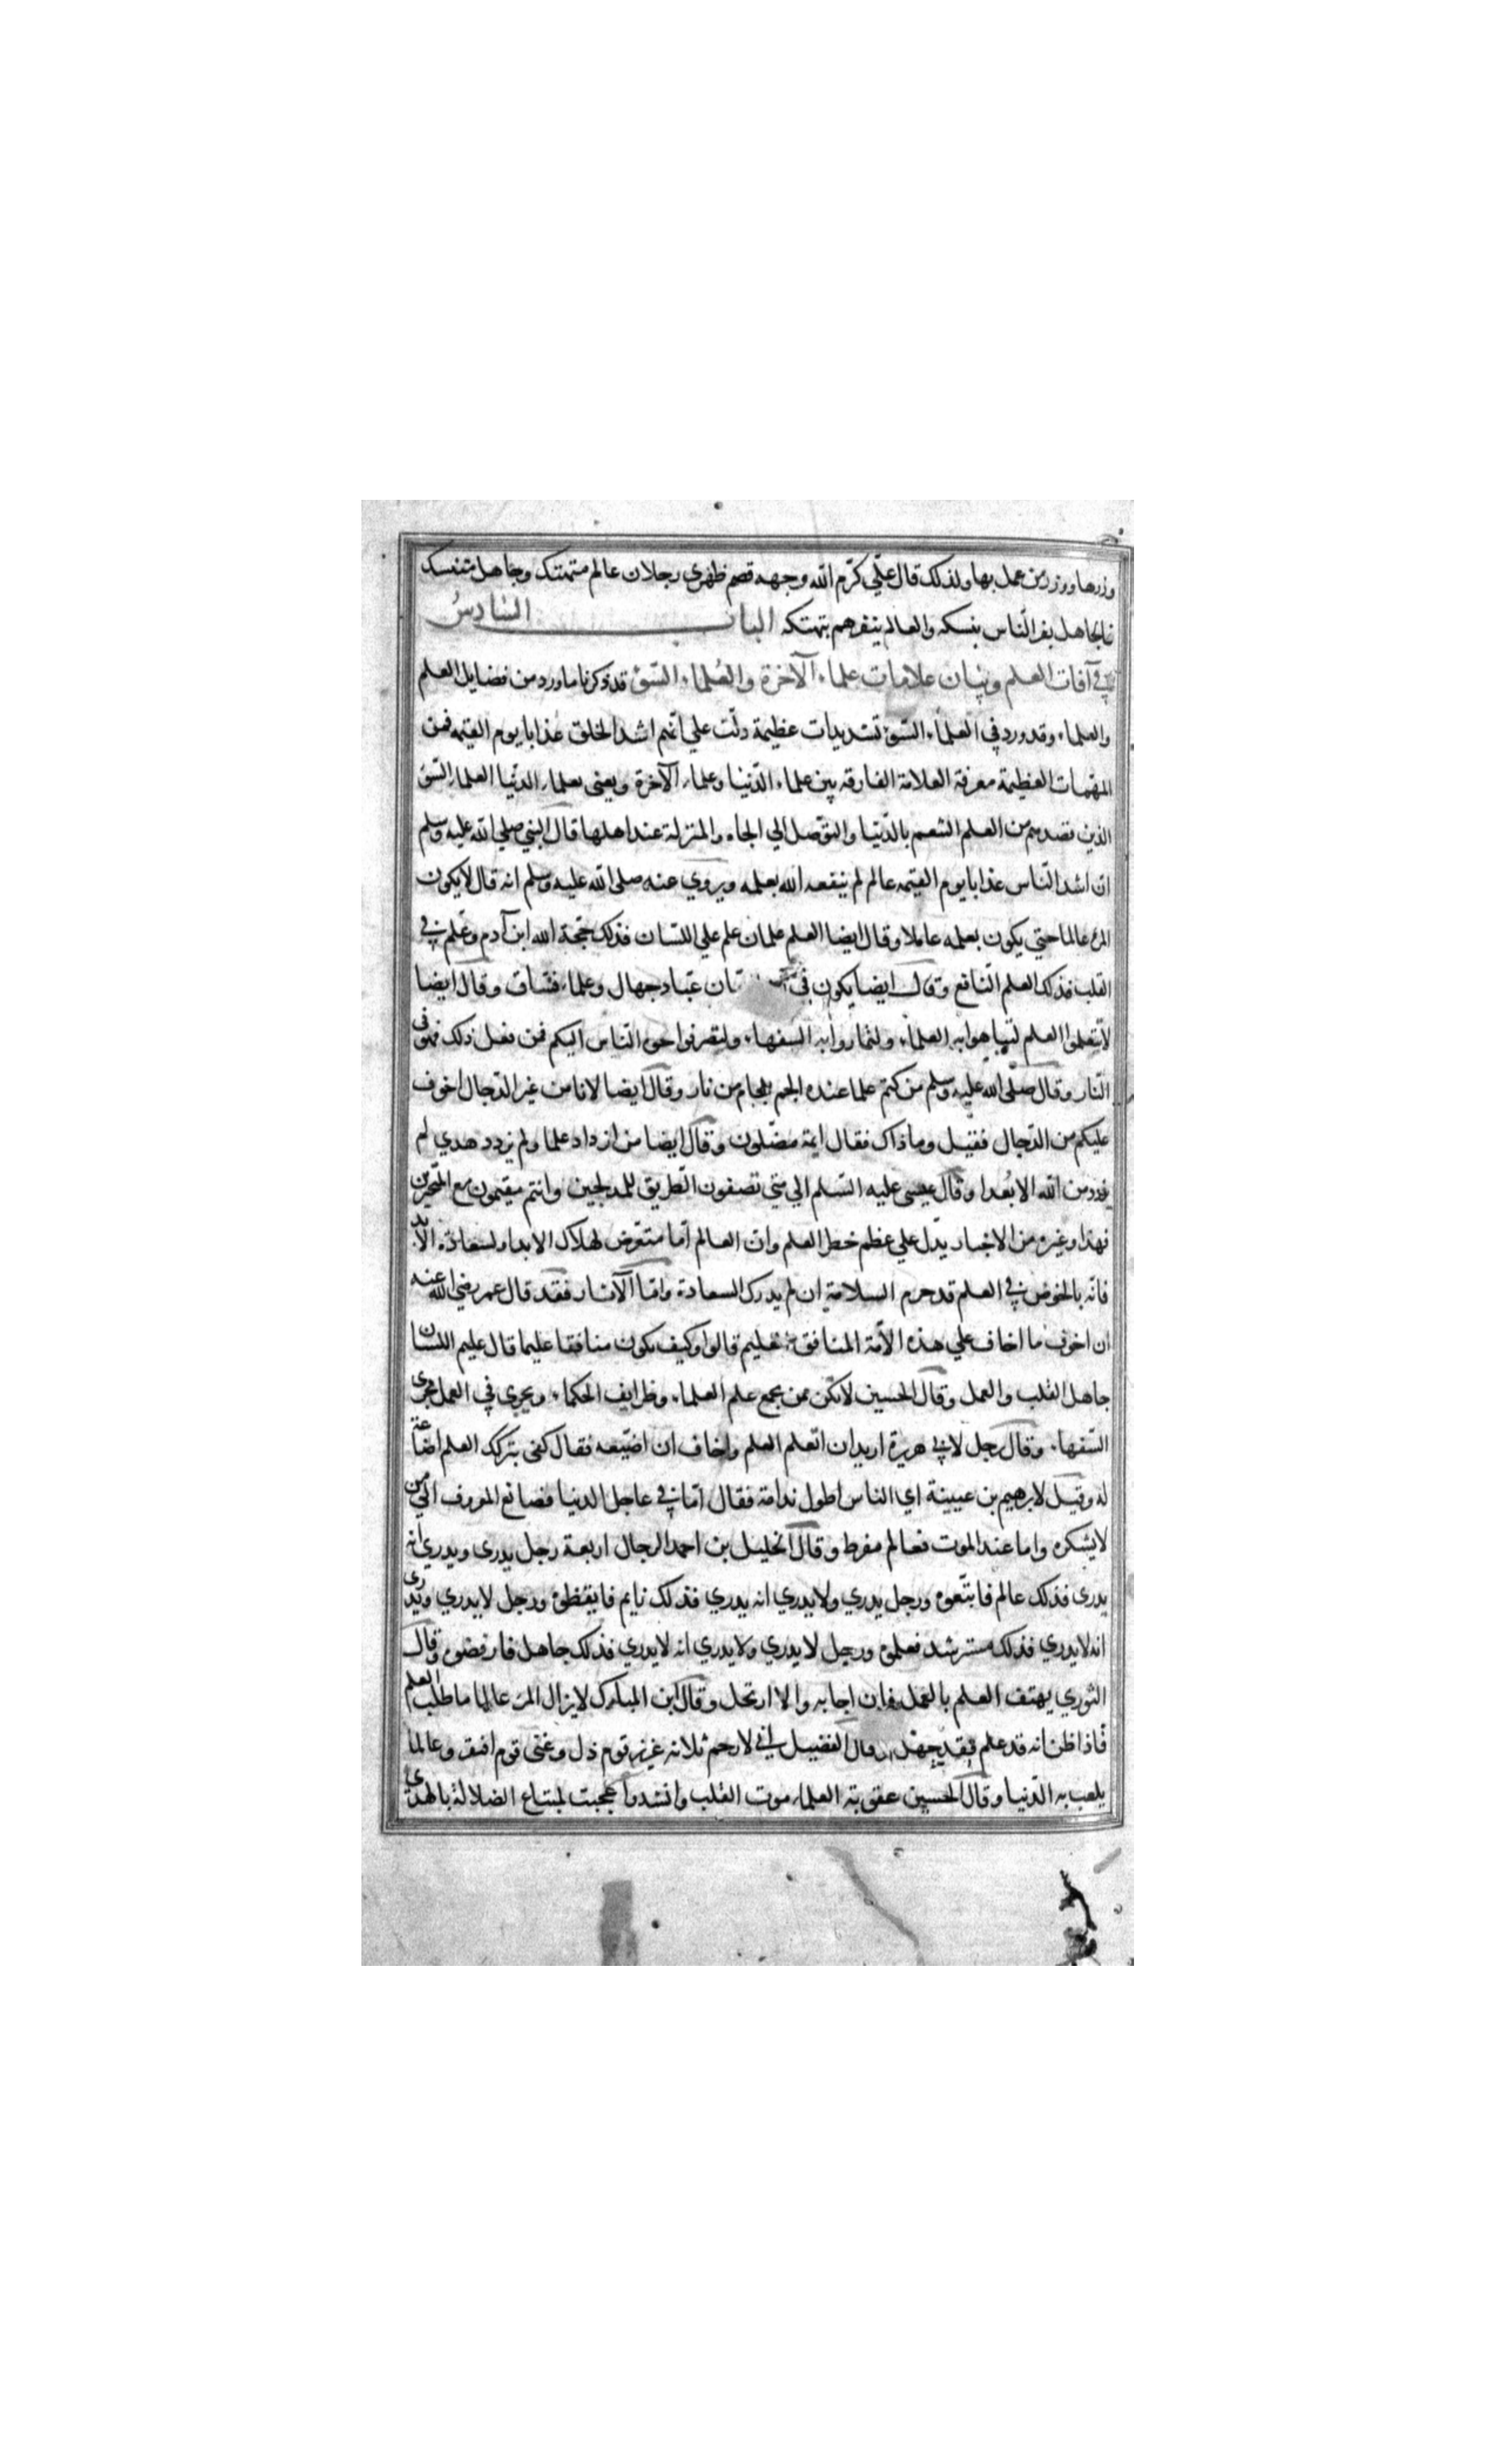 وزرها ووزر من عمل بها ولذلك قال علي كرّم الله وجهه قصم ظهري رجلان عالم متهتك وجاهل متنسك
فالجاهل يغر الناس بنسكه والعالم ينفرهم بتهتكه الباب السادس
في آفات العلم وبيان علامات علماء الآخرة والعلماء السوء قد ذكرنا ما ورد من فضايل العلم
والعلماء وقد ورد في العلماء السوء تشديدات عظيمة دلّت علي انّهم اشد الخلق عذابا يوم القيمه فمن
المهمات العظيمة معرفة العلامة الفارقه بين علماء الدّنيا وعلماء الآخرة ويعنى بعلماء الدنيا العلماء السوء
الذين قصدهم من العلم التنعم بالدّنيا والتوّصل الي الجاه والمنزلة عند اهلها قال النبي صلي الله عليه وسلم
ان اشد النّاس عذابا يوم القيمه عالم لم ينفعه الله بعلمه ويروي عنه صلى الله عليه وسلم انه قال لا يكون
المرء عالما حتي يكون بعلمه عاملا وقال ايضا العلم علمان علم علي اللسان فذلك حجّة الله ابن آدم وعلم في
القلب فذلك العلم النّافع وقال ايضا يكون في عبّاد جهال وعلماء فسّاق وقال ايضا
لا تتعلموا العلم لتباهوا به العلماء ولتماروا به السفهاء ولتصرفوا وجوه النّاس اليكم فمن فعل ذلك فهو في
النّار وقال صلّى الله عليه وسلم من كتم علما عنده الجم بلجام من نار وقال ايضا لانا من غير الدّجال اخوف
عليكم من الدّجال فقيل وما ذاك فقال ايمة مضّلون وقال ايضا من ازداد علما ولم يزدد هدي لم
يزدد من الله الا بُعدا وقال عيسى عليه السّلم الي متي تصفون الطّريق للمدلجين وانتم مقيمون مع المتحيرين
فهذا وغيره من الاخبار يدّل علي عظم خطر العلم وان العالم اما متعّرض لهلاك الابد او لسعادة الابد
فانّه بالخوض في العلم قد حرم السلامة ان لم يدرك السعادة وامّا الآثار فقد قال عمر رضي الله عنه
ان اخوف ما اخاف علي هذه الأمّة المنافق عليم قالوا وكيف يكون منافقا عليما قال عليم اللسان
جاهل القلب والعمل وقال الحسين لا تكن ممن يجمع علم العلماء وظرايف الحكماء ويجري في العمل مجرى
السّفهاء وقال رجل لابي هريرة اريد ان اتعلم العلم واخاف ان اضيّعه فقال كفى بتركك العلم اضاعة
له وقيل لابرهيم بن عيينة اي الناس اطول ندامة فقال امّا في عاجل الدنيا فصانع المعروف الي من
لا يشكره واما عند الموت فعالم مفرط وقال الخليل بن احمد الرجال اربعة رجل يدرى ويدري انه
يدرى فذلك عالم فاتّبعوه ورجل يدري ولا يدري انه يدري فذلك نايم فايقظوه ورجل لا يدري ويدرى
انه لا يدري فذلك مسترشد فعلموه ورجل لا يدري ولا يدري انه لا يدري فذلك جاهل فارفضوه وقال
الثوري يهتف العلم بالعمل فان اجابه والا ارتحل وقال ابن المبارك لا يزال المرء عالما ما طلب العلم
فاذا ظن انه قد علم فقد جهل وقال الفضيل اني لارحم ثلاثه عزيز قوم ذل وغنى قوم افتقر وعالما
يلعب به الدّنيا وقال الحسين عقوبة العلماء موت القلب وانشدوا عجبت لمبتاع الضلالة بالهدى